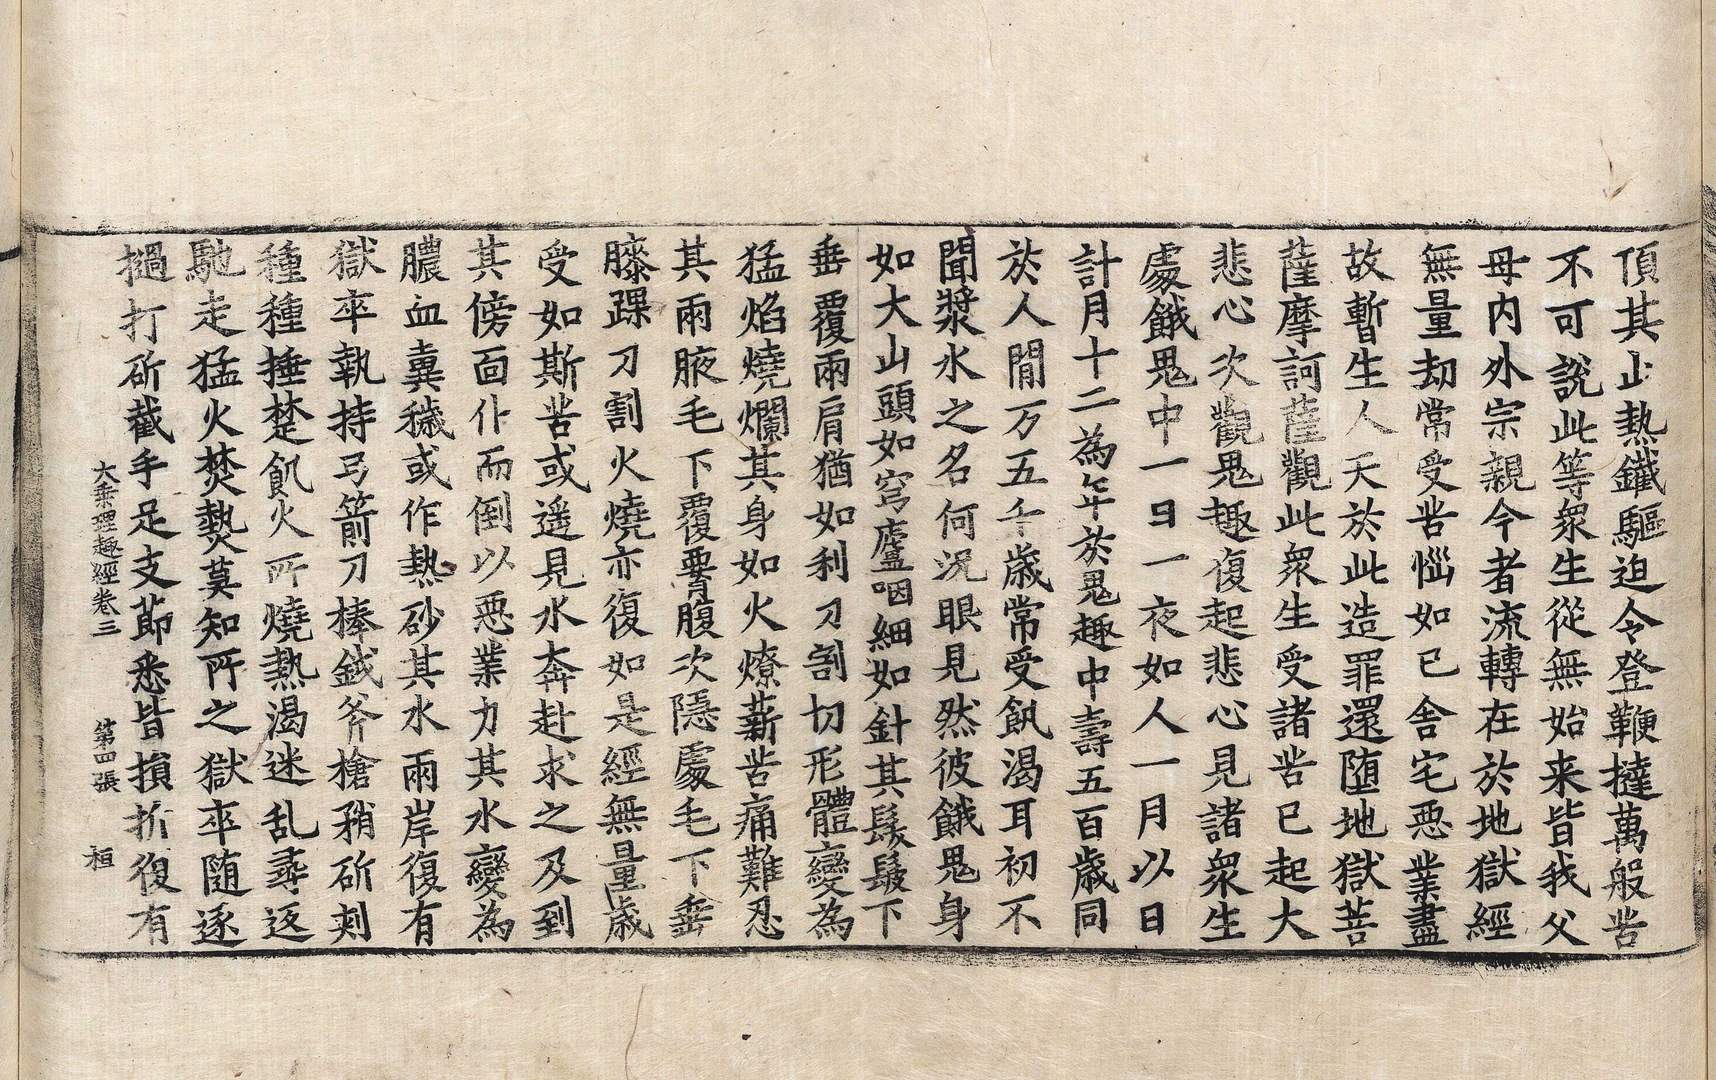 頂其山熱鐵驅迫令登鞭撻萬般苦
不可說此等衆生從無始来皆我父
母内外宗親今者流轉在於地獄經
無量劫常受苦惱如已舍宅惡業盡
故暫生人天於此造罪還墮地獄菩
薩摩訶薩觀此衆生受諸苦已起大
悲心次觀鬼趣復起悲心見諸衆生
處餓鬼中一日一夜如人一月以日
計月十二為年於鬼趣中壽五百歲同
於人間万五千歲常受飢渴耳初不
聞漿水之名何況眼見然彼餓鬼身
如大山頭如穹廬咽細如針其髮髼下
垂覆兩肩猶如利刀割切形體變為
猛焰燒爛其身如火燎薪苦痛難忍
其兩腋毛下覆臂腹次隱處毛下垂
膝踝刀割火燒亦復如是經無量歲
受如斯苦或遥見水奔赴求之及到
其傍面仆而倒以惡業力其水變為
膿血糞穢或作熱砂其水兩岸復有
獄卒執持弓箭刀棒鉞斧槍矟斫刺
種種捶楚飢火所燒熱渴迷乱尋返
馳走猛火焚爇莫知所之獄卒随逐
撾打斫截手足支節悉皆損折復有
大乘理趣經卷三　第四張　桓